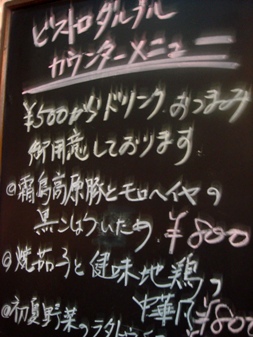 ビストロダルブル
カウンターメニュー
¥500からドリンク、おつまみ
御用意しております
@霧島高原豚とモロヘイヤの
黒こしょういため ¥800
@焼茄子と健味地鶏の
中華風 ¥800
@初夏野菜の